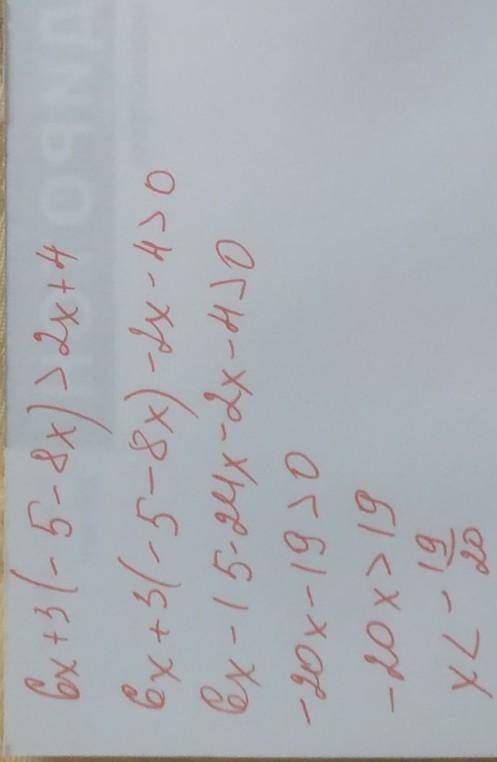 6x+3(-5-8x)>2x+4
6x+3(-5-8x)-2x-4>0
6x-15-24x-2x-4>0
-20x-19>0
-20x>19
x<-19/20